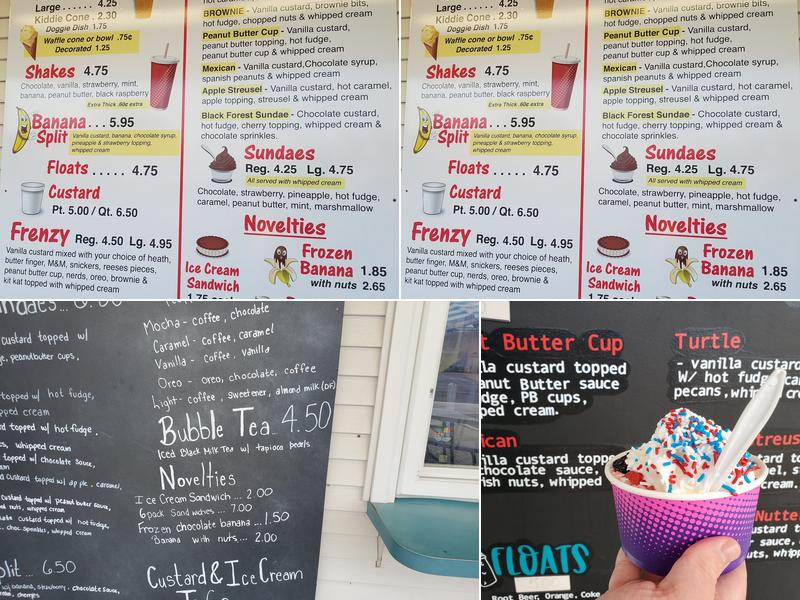 Large ...... 4.25
Kiddie Cone . 2.30
Doggie Dish 1.75
Waffle cone or bowl .75¢
Decorated 1.25
Shakes 4.75
Chocolate, vanilla, strawberry, mint,
banana, peanut butter, black raspberry
Extra Thick .60¢ extra
Banana
Split ... 5.95
Vanilla custard, banana, chocolate syrup,
pineapple & strawberry topping,
whipped cream
Floats ..... 4.75
Custard
Pt. 5.00 / Qt. 6.50
Frenzy Reg. 4.50 Lg. 4.95
Vanilla custard mixed with your choice of heath,
butter finger, M&M, snickers, reeses pieces,
peanut butter cup, nerds, oreo, brownie &
kit kat topped with whipped cream
hot fudge, peanut butter & whipped cream
BROWNIE - Vanilla custard, brownie bits,
hot fudge, chopped nuts & whipped cream
Peanut Butter Cup - Vanilla custard,
peanut butter topping, hot fudge,
peanut butter cup & whipped cream
Mexican - Vanilla custard,Chocolate syrup,
spanish peanuts & whipped cream
Apple Streusel - Vanilla custard, hot caramel,
apple topping, streusel & whipped cream
Black Forest Sundae - Chocolate custard,
hot fudge, cherry topping, whipped cream &
chocolate sprinkles.
Sundaes
Reg. 4.25 Lg. 4.75
All served with whipped cream
Chocolate, strawberry, pineapple, hot fudge,
caramel, peanut butter, mint, marshmallow
Novelties
Ice Cream
Sandwich
1.75 each
Frozen
Banana 1.85
with nuts 2.65
Large ...... 4.25
Kiddie Cone . 2.30
Doggie Dish 1.75
Waffle cone or bowl .75¢
Decorated 1.25
Shakes 4.75
Chocolate, vanilla, strawberry, mint,
banana, peanut butter, black raspberry
Extra Thick .60¢ extra
Banana
Split ... 5.95
Vanilla custard, banana, chocolate syrup,
pineapple & strawberry topping,
whipped cream
Floats ..... 4.75
Custard
Pt. 5.00 / Qt. 6.50
Frenzy Reg. 4.50 Lg. 4.95
Vanilla custard mixed with your choice of heath,
butter finger, M&M, snickers, reeses pieces,
peanut butter cup, nerds, oreo, brownie &
kit kat topped with whipped cream
BROWNIE - Vanilla custard, brownie bits,
hot fudge, chopped nuts & whipped cream
Peanut Butter Cup - Vanilla custard,
peanut butter topping, hot fudge,
peanut butter cup & whipped cream
Mexican - Vanilla custard,Chocolate syrup,
spanish peanuts & whipped cream
Apple Streusel - Vanilla custard, hot caramel,
apple topping, streusel & whipped cream
Black Forest Sundae - Chocolate custard,
hot fudge, cherry topping, whipped cream &
chocolate sprinkles.
Sundaes
Reg. 4.25 Lg. 4.75
All served with whipped cream
Chocolate, strawberry, pineapple, hot fudge,
caramel, peanut butter, mint, marshmallow
Novelties
Ice Cream
Sandwich
Frozen
Banana 1.85
with nuts 2.65
custard topped w/
peanutbutter cups,
topped w/ hot fudge,
pped cream
topped w/ hot fudge,
whipped cream
topped w/ chocolate sauce,
topped w/ apple, caramel,
custard topped w/ peanut butter sauce,
nuts, whipped cream
custard topped w/ hot fudge,
choc sprinkles, whipped cream
plit ... 6.50
w/ banana, strawberry, chocolate sauce,
cherries
Mocha - coffee, chocolate
Caramel - coffee, caramel
Vanilla - coffee, vanilla
Oreo - oreo, chocolate, coffee
Light - coffee, sweetener, almond milk (DF)
Bubble Tea 4.50
Iced Black Milk Tea w/ tapioca pearls
Novelties
Ice Cream Sandwich ... 2.00
6 pack Sandwiches ... 7.00
Frozen chocolate banana ... 1.50
Banana with nuts ... 2.00
Custard & Ice Cream
t Butter Cup
la custard topped
anut Butter sauce
dge, PB cups,
ped cream.
ican
illa custard topped
hocolate sauce,
ish nuts, whipped
Turtle
- vanilla custard
W/ hot fudge, ca
pecans, whip
treus
cream.
Nutte
FLOATS
Root Beer, Orange, Coke